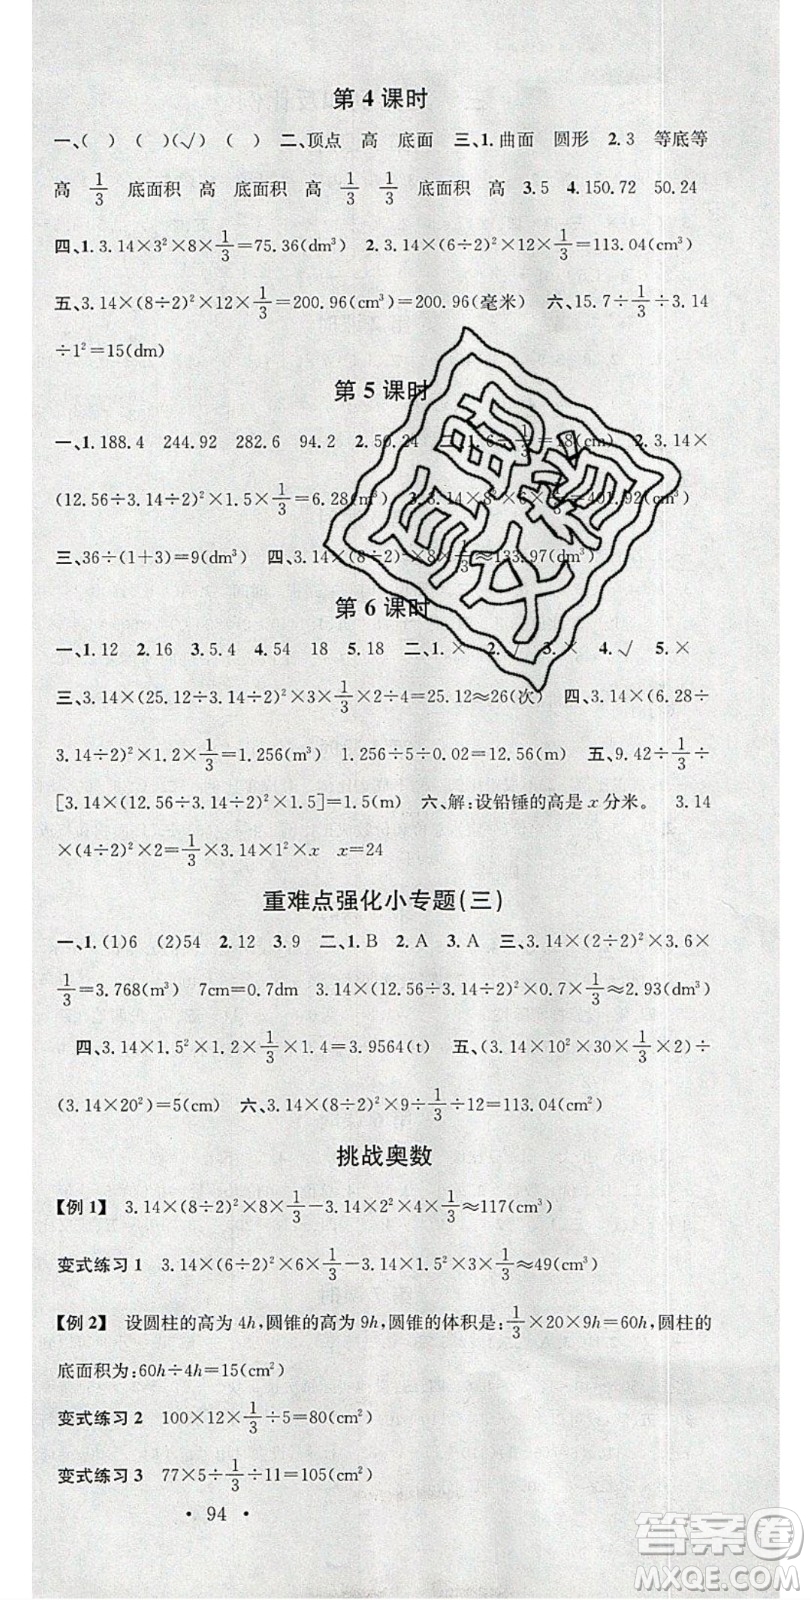 第 4 课时
一、( ) ( )(√) ( ) 二、顶点 高 底面 三、1.曲面 圆形 2.3 等底等
高 1/3 底面积 高 底面积 高 1/3 1/3 底面积 高 3.5 4.150.72 50.24
四、1.3.14×3²×8×1/3=75.36(dm³) 2.3.14×(6÷2)²×12×1/3=113.04(cm³)
五、3.14×(8÷2)²×12×1/3=200.96(cm³)=200.96(毫米) 六、15.7÷1/3÷3.14
÷1²=15(dm)
第 5 课时
一、1.188.4 244.92 282.6 94.2 2.50.24 1.6÷1/3=18(cm) 2.3.14×
(12.56÷3.14÷2)²×1.5×1/3=6.28(m³) 3.3.14×8²×6×1/3=401.92(cm³)
三、36÷(1+3)=9(dm³) 四、3.14×(8÷2)²×8×1/3≈133.97(dm³)
第 6 课时
一、1.12 2.16 3.5.4 4.54 18 5.18 二、1.× 2. 3.× 4.√ 5.×
三、3.14×(25.12÷3.14÷2)²×3×1/3×2÷4=25.12≈26(次) 四、3.14×(6.28÷
3.14÷2)²×1.2×1/3=1.256(m³) 1.256÷5÷0.02=12.56(m) 五、9.42÷1/3÷
[3.14×(12.56÷3.14÷2)²×1.5]=1.5(m) 六、解:设铅锤的高是 x 分米。 3.14
×(4÷2)²×2=1/3×3.14×1²×x x=24
重难点强化小专题(三)
一、1.(1)6 (2)54 2.12 3.9 二、1.B 2.A 3.A 三、3.14×(2÷2)²×3.6×
1/3=3.768(m³) 7cm=0.7dm 3.14×(12.56÷3.14÷2)²×0.7×1/3≈2.93(dm³)
四、3.14×1.5²×1.2×1/3×1.4=3.9564(t) 五、(3.14×10²×30×1/3×2)÷
(3.14×20²)=5(cm) 六、3.14×(8÷2)²×9÷1/3÷12=113.04(cm²)
挑战奥数
【例 1】 3.14×(8÷2)²×8×1/3−3.14×2²×4×1/3≈117(cm³)
变式练习 1 3.14×(6÷2)²×6×1/3−3.14×1.5²×3×1/3≈49(cm³)
【例 2】 设圆柱的高为 4h,圆锥的高为 9h,圆锥的体积是:1/3×20×9h=60h,圆柱的
底面积为:60h÷4h=15(cm²)
变式练习 2 100×12×1/3÷5=80(cm²)
变式练习 3 77×5÷1/3÷11=105(cm²)
· 94 ·
答案圈
MXQE.COM